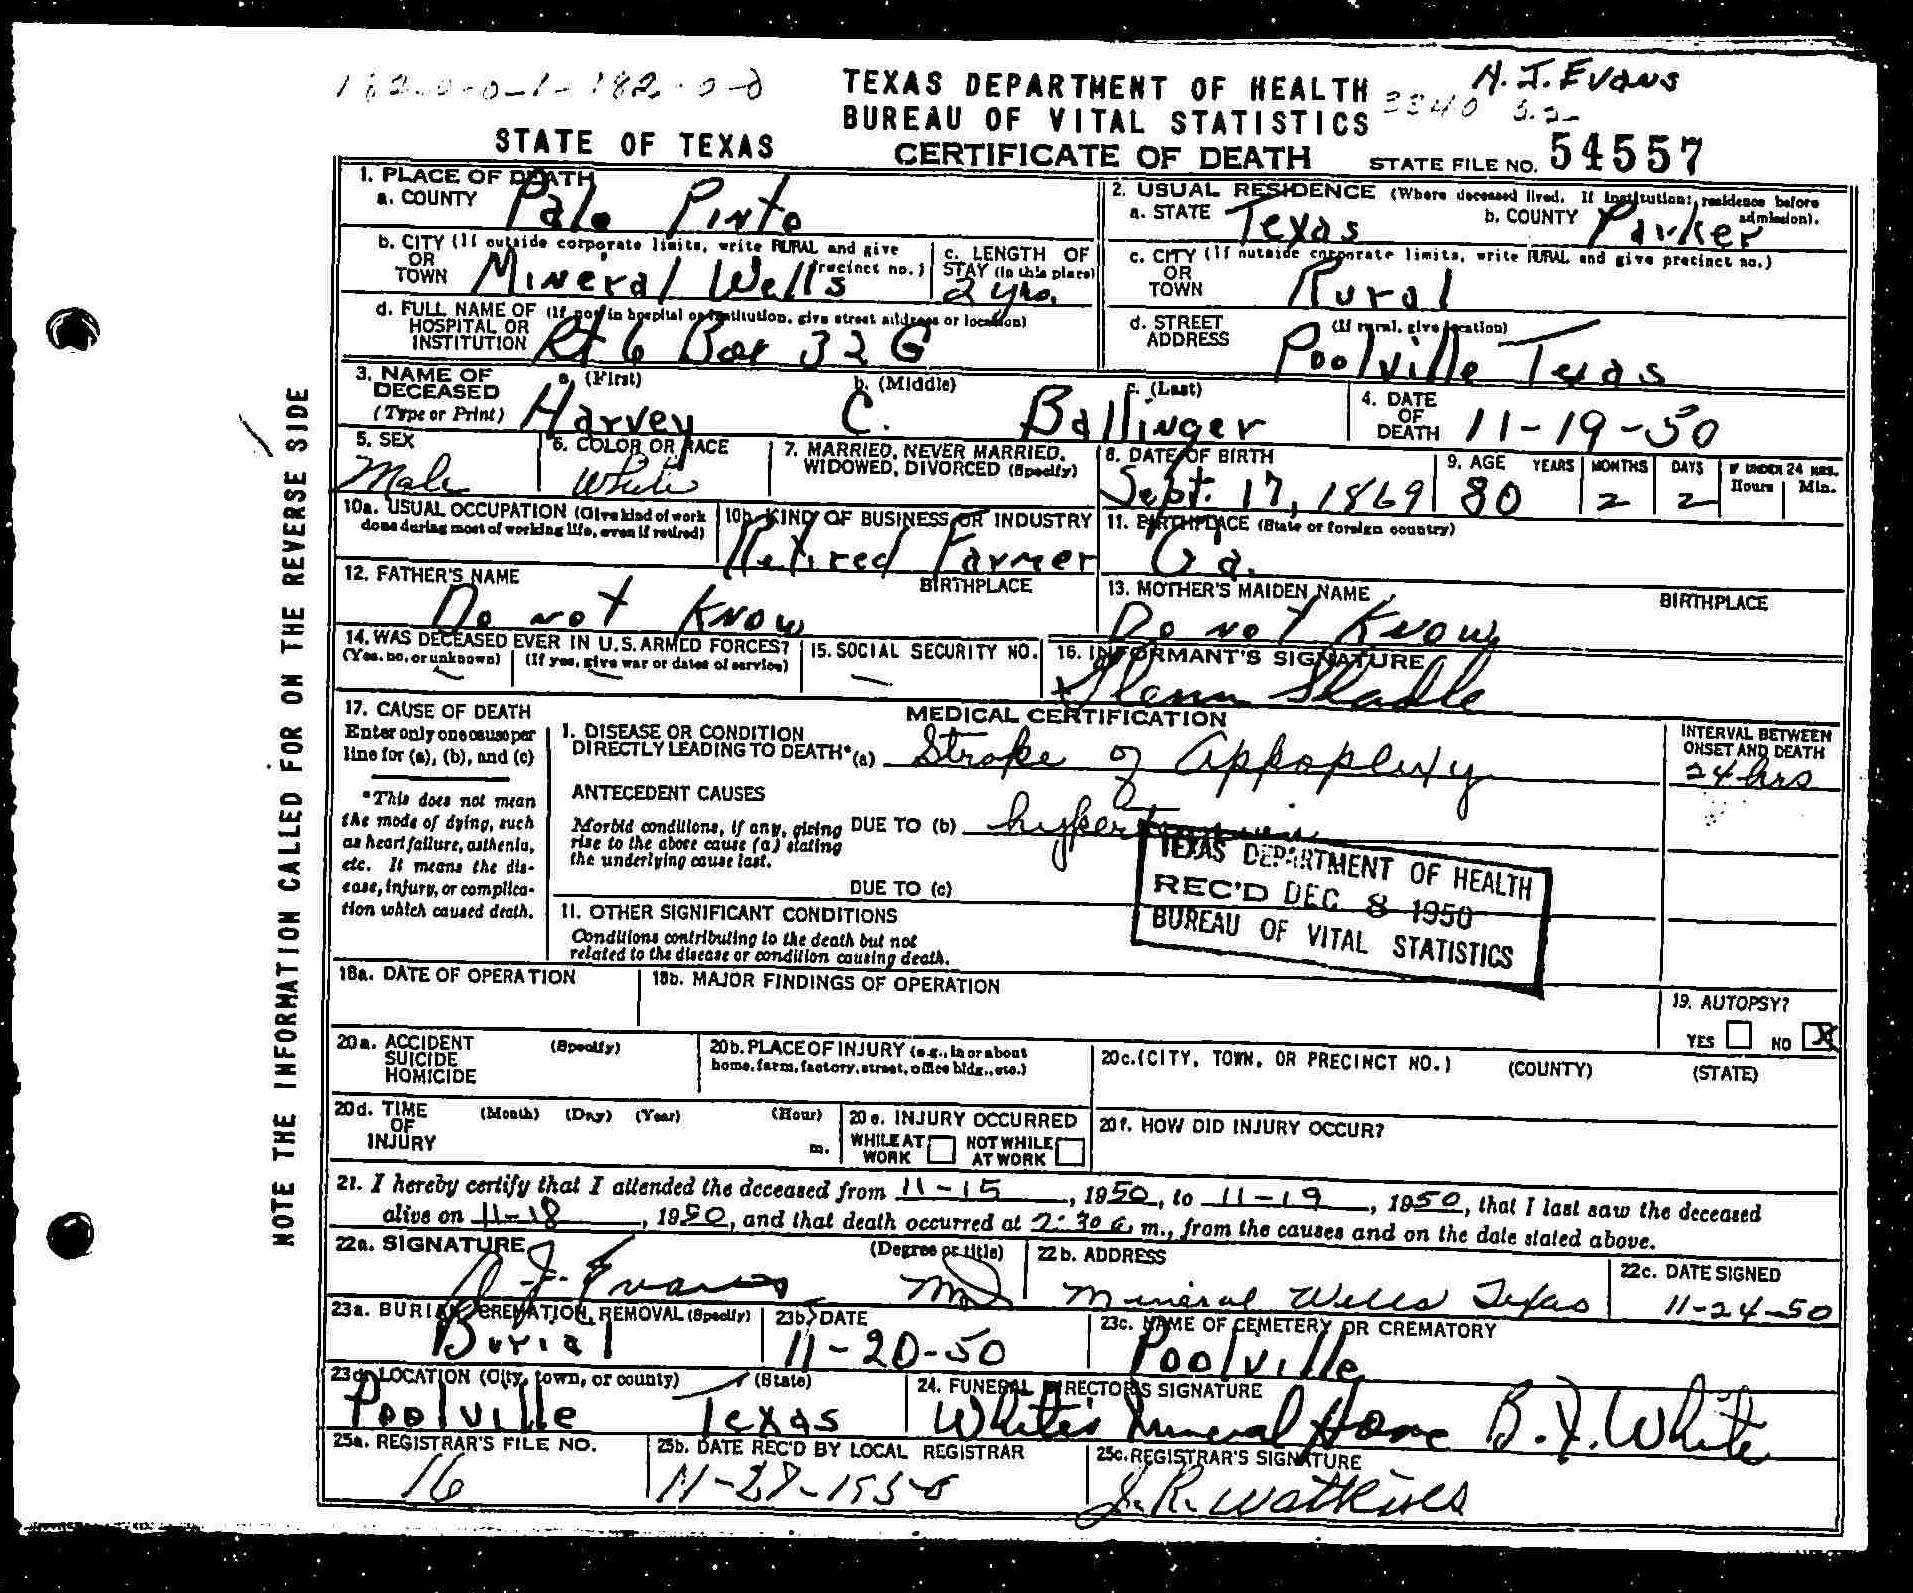 182-0-0-1-182-0-0
TEXAS DEPARTMENT OF HEALTH
A. J. Evans
BUREAU OF VITAL STATISTICS
STATE OF TEXAS
CERTIFICATE OF DEATH
STATE FILE NO. 54557
NOTE THE INFORMATION CALLED FOR ON THE REVERSE SIDE
1. PLACE OF DEATH
a. COUNTY Palo Pinto
2. USUAL RESIDENCE (Where deceased lived. If institution: residence before admission).
a. STATE Texas b. COUNTY Parker
b. CITY (If outside corporate limits, write RURAL and give precinct no.)
OR
TOWN Mineral Wells
c. LENGTH OF STAY (in this place) 2 yrs.
c. CITY (If outside corporate limits, write RURAL and give precinct no.)
OR
TOWN Rural
d. FULL NAME OF (If not in hospital or institution, give street address or location)
HOSPITAL OR
INSTITUTION Rt 6 Box 32 G
d. STREET (If rural, give location)
ADDRESS Poolville Texas
3. NAME OF DECEASED (Type or Print)
a. (First) b. (Middle) c. (Last)
Harvey C. Ballinger
4. DATE OF DEATH 11-19-50
5. SEX
Male
6. COLOR OR RACE
White
7. MARRIED, NEVER MARRIED, WIDOWED, DIVORCED (Specify)
8. DATE OF BIRTH
Sept. 17, 1869
9. AGE YEARS MONTHS DAYS IF UNDER 24 HRS. Hours Min.
80 2 2
10a. USUAL OCCUPATION (Give kind of work done during most of working life, even if retired)
10b. KIND OF BUSINESS OR INDUSTRY
Retired Farmer
11. BIRTHPLACE (State or foreign country)
Ga.
12. FATHER'S NAME BIRTHPLACE
Do not Know
13. MOTHER'S MAIDEN NAME BIRTHPLACE
Do not Know
14. WAS DECEASED EVER IN U. S. ARMED FORCES?
(Yes, no, or unknown) (If yes, give war or dates of service)
15. SOCIAL SECURITY NO.
16. INFORMANT'S SIGNATURE
Glenn Shadle
17. CAUSE OF DEATH
Enter only one cause per line for (a), (b), and (c)
*This does not mean the mode of dying, such as heart failure, asthenia, etc. It means the disease, injury, or complication which caused death.
MEDICAL CERTIFICATION
INTERVAL BETWEEN ONSET AND DEATH
I. DISEASE OR CONDITION
DIRECTLY LEADING TO DEATH* (a) Stroke of Appoplexy 24 hrs
ANTECEDENT CAUSES
Morbid conditions, if any, giving rise to the above cause (a) stating the underlying cause last.
DUE TO (b) hypertension
DUE TO (c)
TEXAS DEPARTMENT OF HEALTH
REC'D DEC 8 1950
BUREAU OF VITAL STATISTICS
II. OTHER SIGNIFICANT CONDITIONS
Conditions contributing to the death but not related to the disease or condition causing death.
18a. DATE OF OPERATION
18b. MAJOR FINDINGS OF OPERATION
19. AUTOPSY?
YES NO X
20a. ACCIDENT SUICIDE HOMICIDE (Specify)
20b. PLACE OF INJURY (e.g., in or about home, farm, factory, street, office bldg., etc.)
20c. (CITY, TOWN, OR PRECINCT NO.) (COUNTY) (STATE)
20d. TIME OF INJURY (Month) (Day) (Year) (Hour) m.
20e. INJURY OCCURRED
WHILE AT WORK NOT WHILE AT WORK
20f. HOW DID INJURY OCCUR?
21. I hereby certify that I attended the deceased from 11-15, 1950, to 11-19, 1950, that I last saw the deceased
alive on 11-18, 1950, and that death occurred at 2:30 a. m., from the causes and on the date stated above.
22a. SIGNATURE (Degree or title)
A. J. Evans MD
22b. ADDRESS
Mineral Wells Texas
22c. DATE SIGNED
11-24-50
23a. BURIAL, CREMATION, REMOVAL (Specify)
Burial
23b. DATE
11-20-50
23c. NAME OF CEMETERY OR CREMATORY
Poolville
23d. LOCATION (City, town, or county) (State)
Poolville Texas
24. FUNERAL DIRECTOR'S SIGNATURE
White's Funeral Home B. F. White
25a. REGISTRAR'S FILE NO.
16
25b. DATE REC'D BY LOCAL REGISTRAR
11-27-1950
25c. REGISTRAR'S SIGNATURE
J. R. Watkins